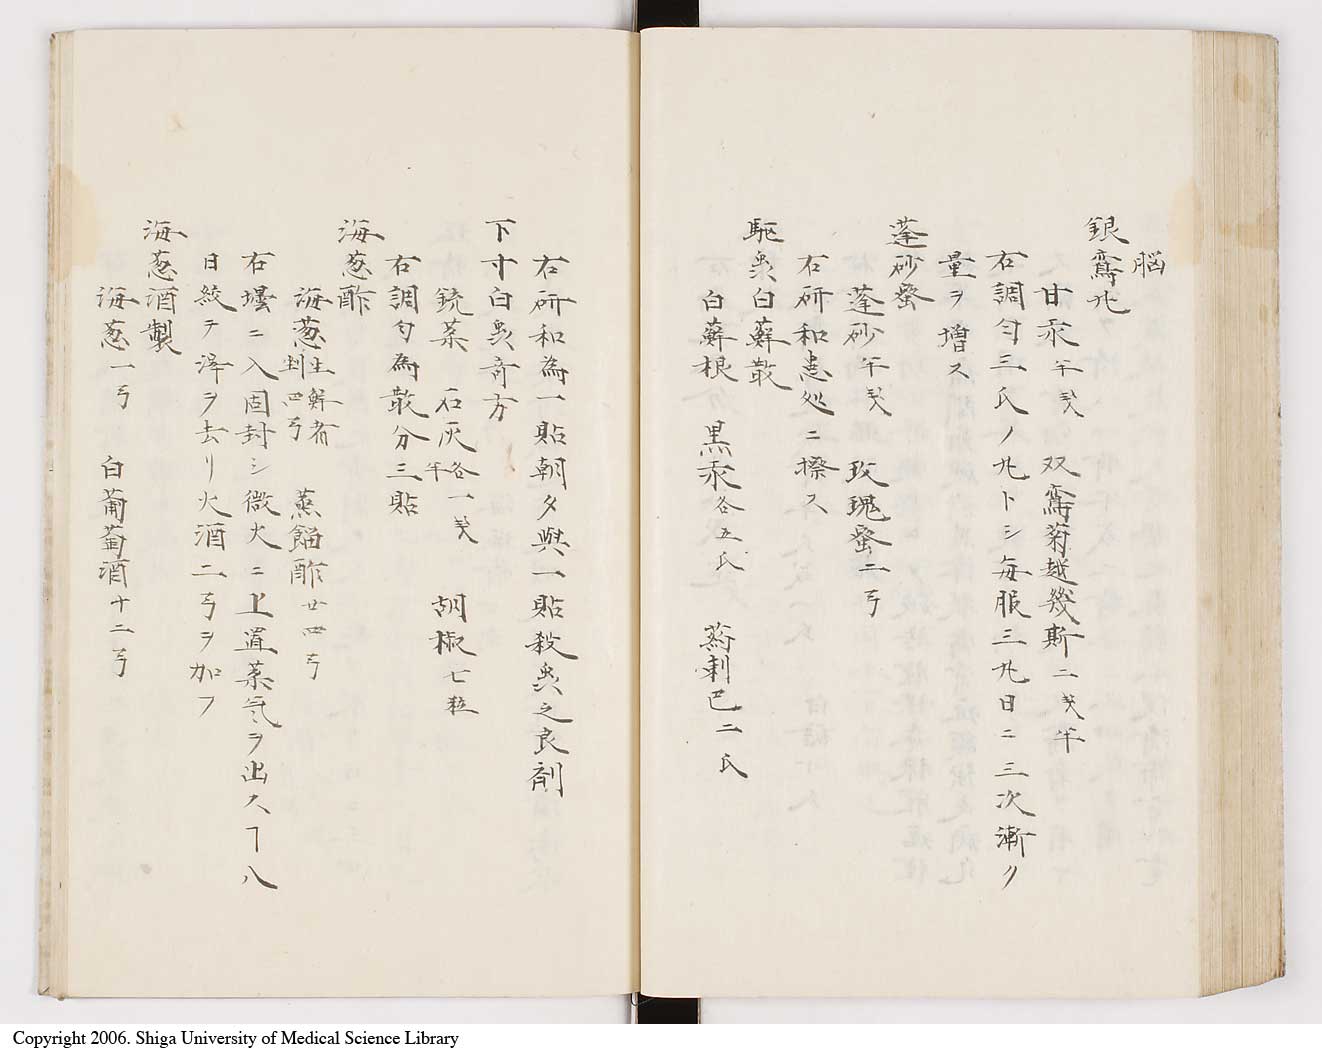 脳
銀鵉丸
甘汞半戔 双鵉菊越幾斯二戔半
右調匀三氏ノ丸トシ毎服三丸日ニ三次漸ク
量ヲ増ス
蓬砂蜜
蓬砂半戔 玫瑰蜜二弓
右研和患処ニ擦ス
駆虫白蘚散
白蘚根 黒汞各五氏 葯剌巴二氏
右研和為一貼朝夕與一貼殺虫之良剤
下寸白虫奇方
銃薬 石灰各一戔半 胡椒七粒
右調匀為散分三貼
海葱酢
海葱生鮮者剉四弓 蒸餾酢廿四弓
右壜ニ入固封シ微火ニ上置蒸気ヲ出スヿ八
日絞テ滓ヲ去リ火酒二弓ヲ加フ
海葱酒製
海葱一弓 白葡萄酒十二弓
Copyright 2006. Shiga University of Medical Science Library